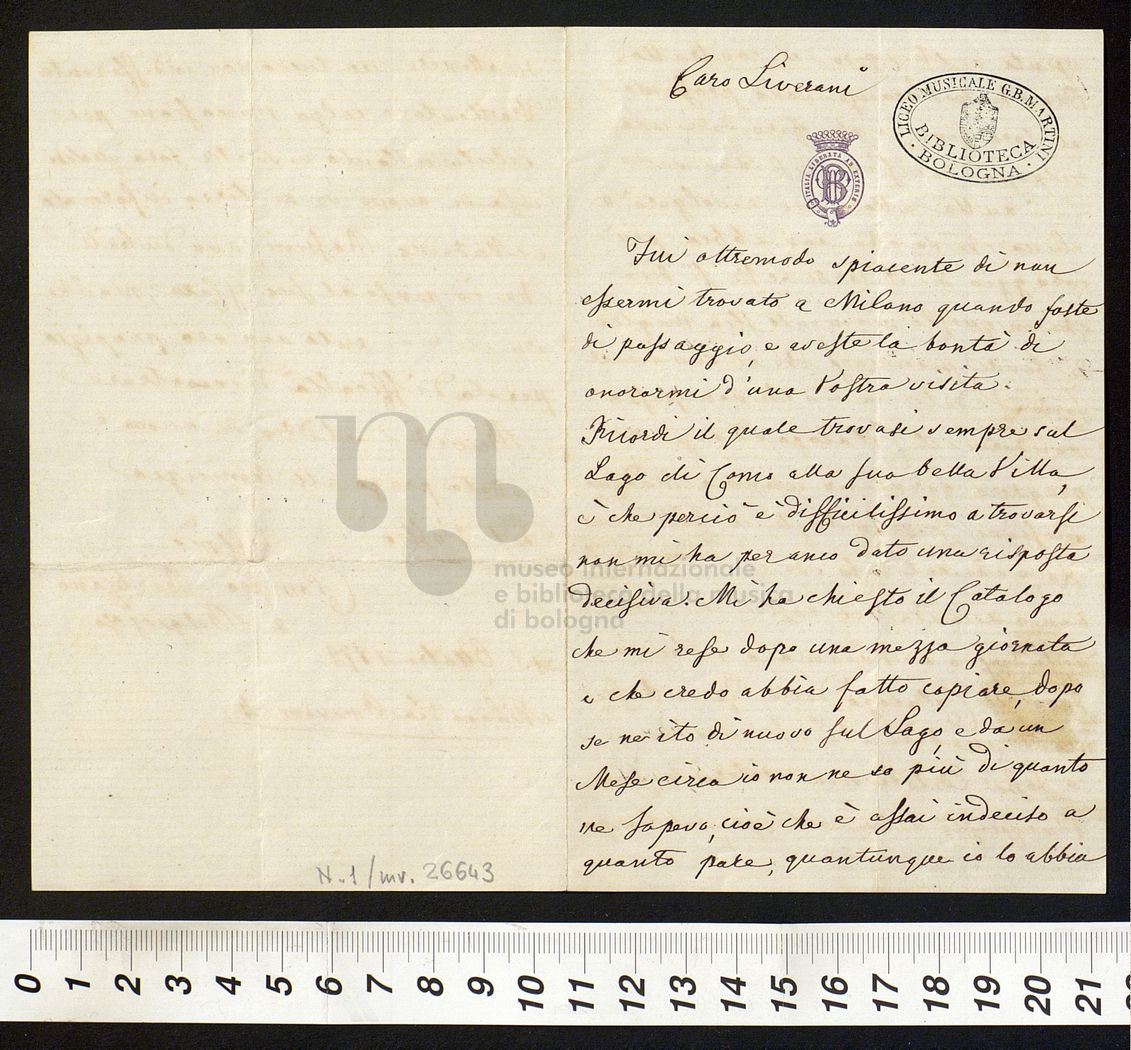 Caro Liverani
LICEO MUSICALE G.B. MARTINI
BIBLIOTECA
BOLOGNA
ITALIA LIBERATA AB EXTERIS
Fui oltremodo spiacente di non
essermi trovato a Milano quando foste
di passaggio, e aveste la bontà di
onorarmi d'una Vostra visita.
Ricordi il quale trovasi sempre sul
Lago di Como alla sua bella Villa,
e che perciò è difficilissimo a trovarsi
non mi ha per anco dato una risposta
decisiva. Mi ha chiesto il Catalogo
che mi rese dopo una mezza giornata
e che credo abbia fatto copiare, dopo
se ne ito di nuovo sul Lago, e da un
Mese circa io non ne so più di quanto
ne sapevo, cioè che è assai indeciso a
quanto pare, quantunque io lo abbia
museo internazionale
e biblioteca della musica
di bologna
N. 1 / inv. 26643
0 1 2 3 4 5 6 7 8 9 10 11 12 13 14 15 16 17 18 19 20 21